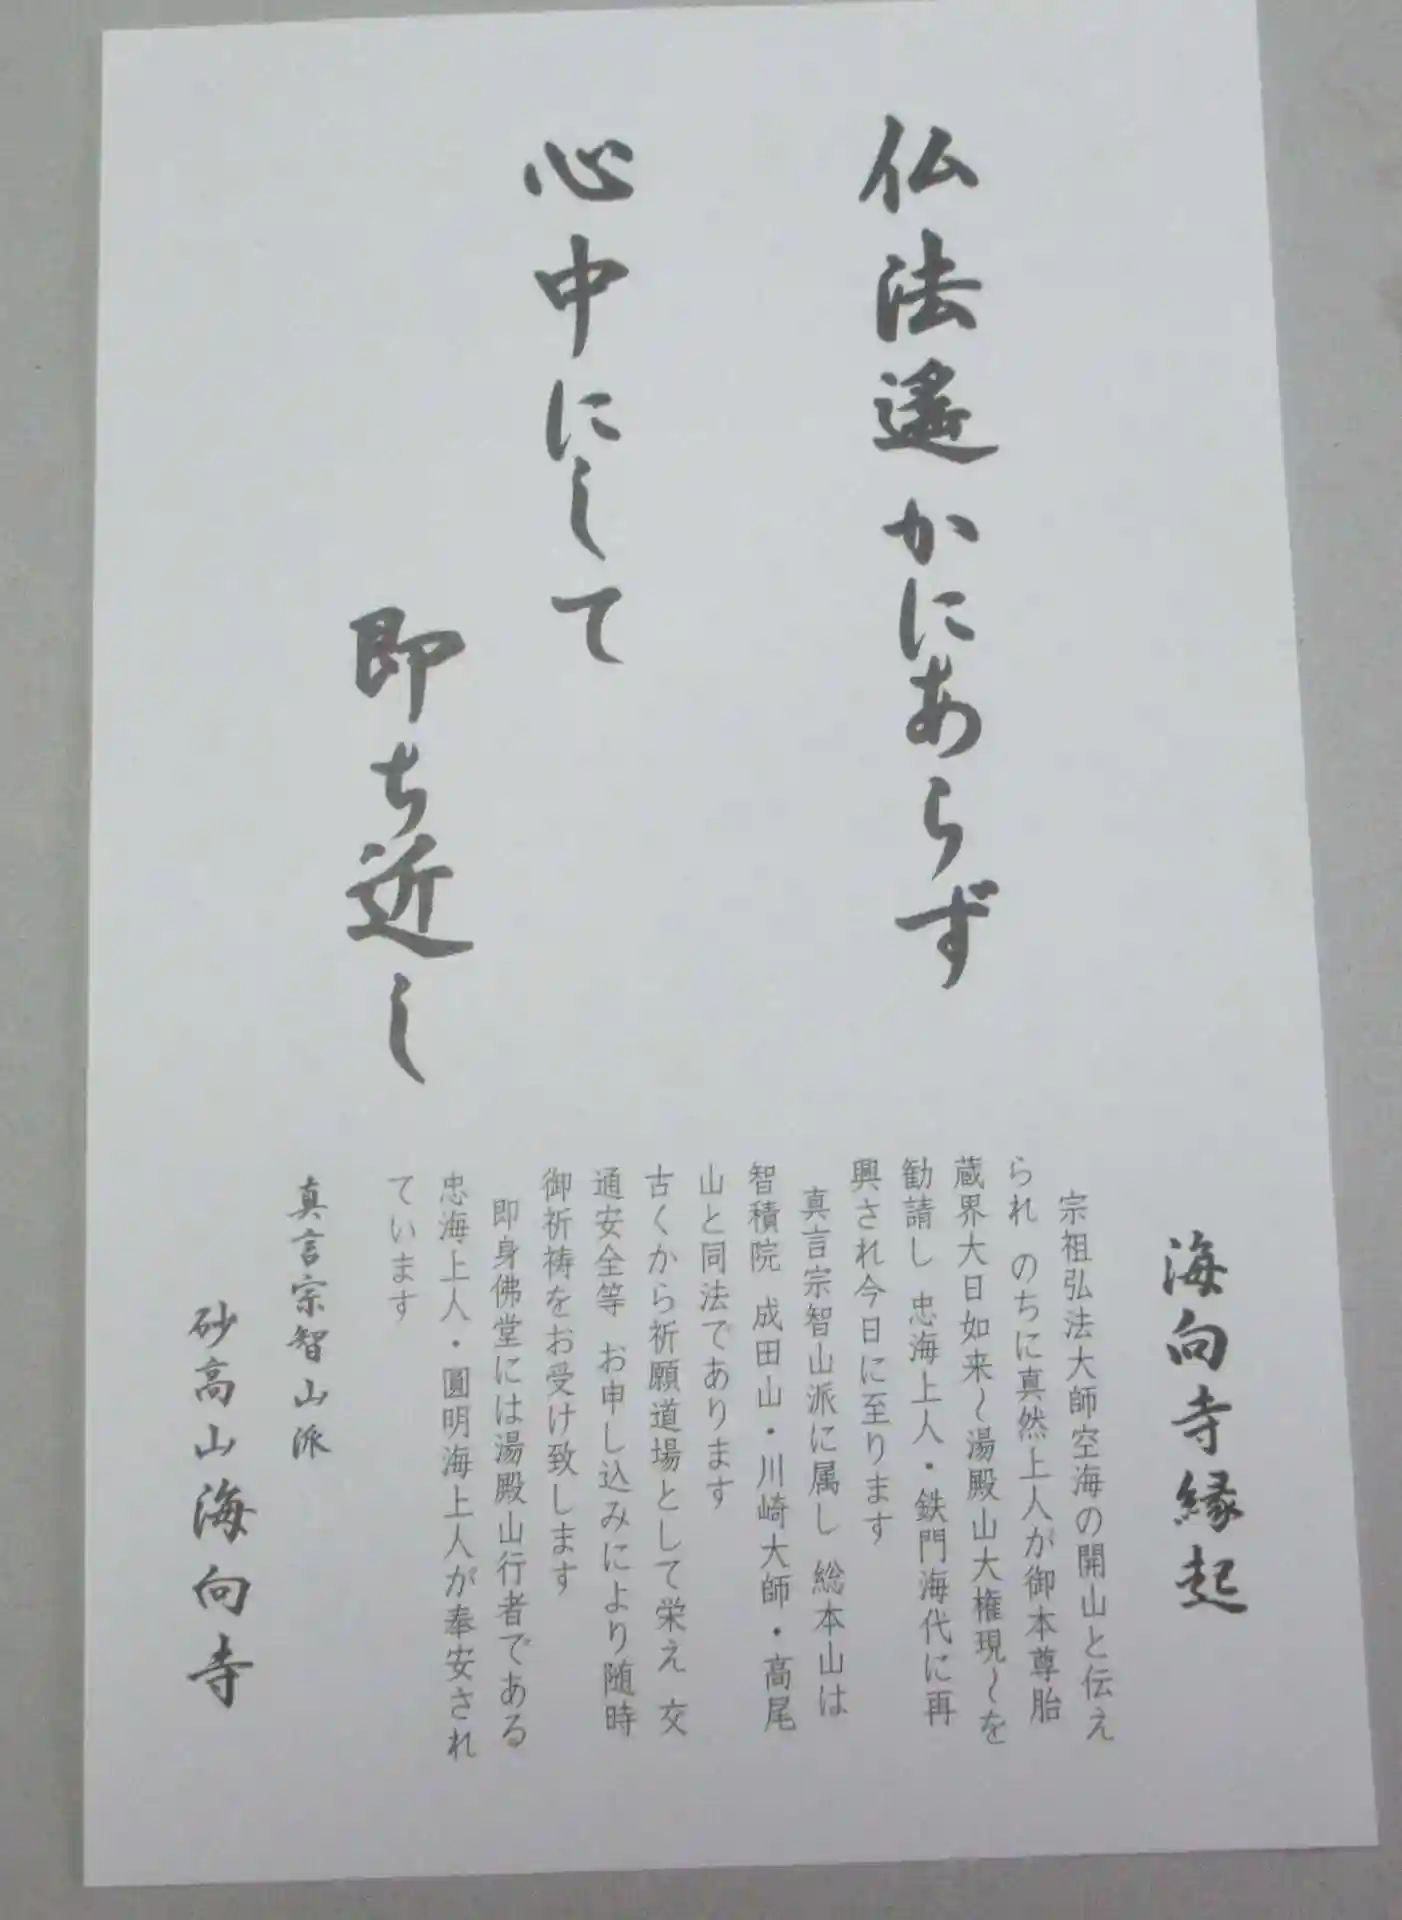 仏法遙かにあらず
心中にして
即ち近し
海向寺縁起
宗祖弘法大師空海の開山と伝え
られ のちに真然上人が御本尊胎
蔵界大日如来～湯殿山大権現～を
勧請し 忠海上人・鉄門海代に再
興され今日に至ります
真言宗智山派に属し 総本山は
智積院 成田山・川崎大師・高尾
山と同法であります
古くから祈願道場として栄え 交
通安全等 お申し込みにより随時
御祈祷をお受け致します
即身佛堂には湯殿山行者である
忠海上人・圓明海上人が奉安され
ています
真言宗智山派
砂高山海向寺